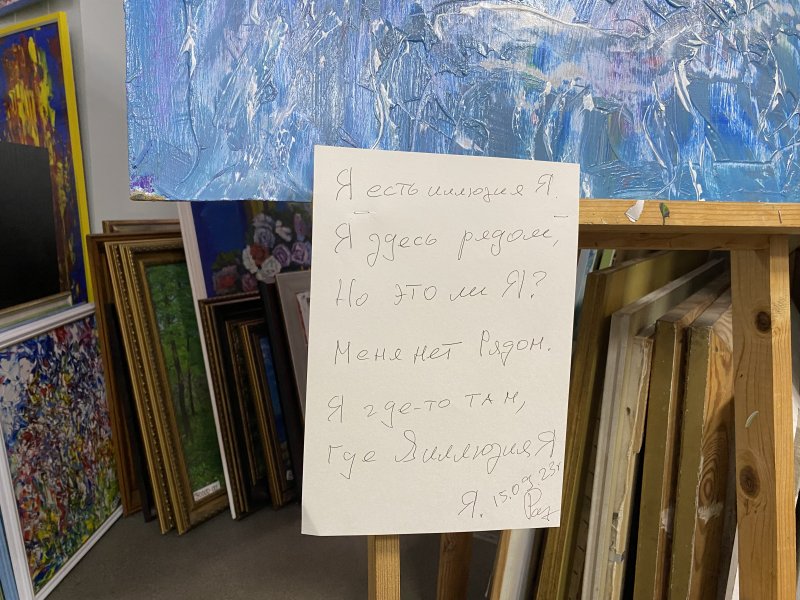 Я есть иллюзия Я.
Я здесь рядом,
Но это ли Я?
Меня нет Рядом.
Я где-то там,
где Я иллюзия Я
Я. 15.09.23г